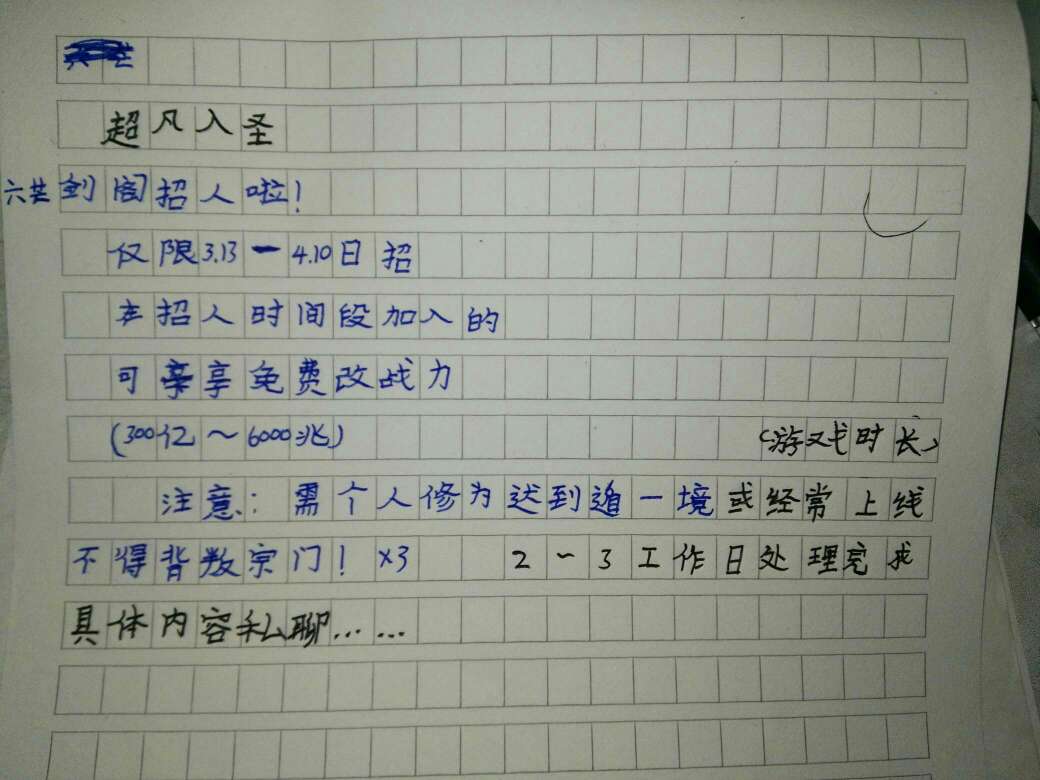 超凡入圣
六芒剑阁招人啦!
仅限3.13-4.10日招
在招人时间段加入的
可享免费改战力
(300亿~6000兆)
(游戏时长)
注意:需个人修为达到逍一境或经常上线
不得背叛宗门!x3 2~3工作日处理完
具体内容私聊……